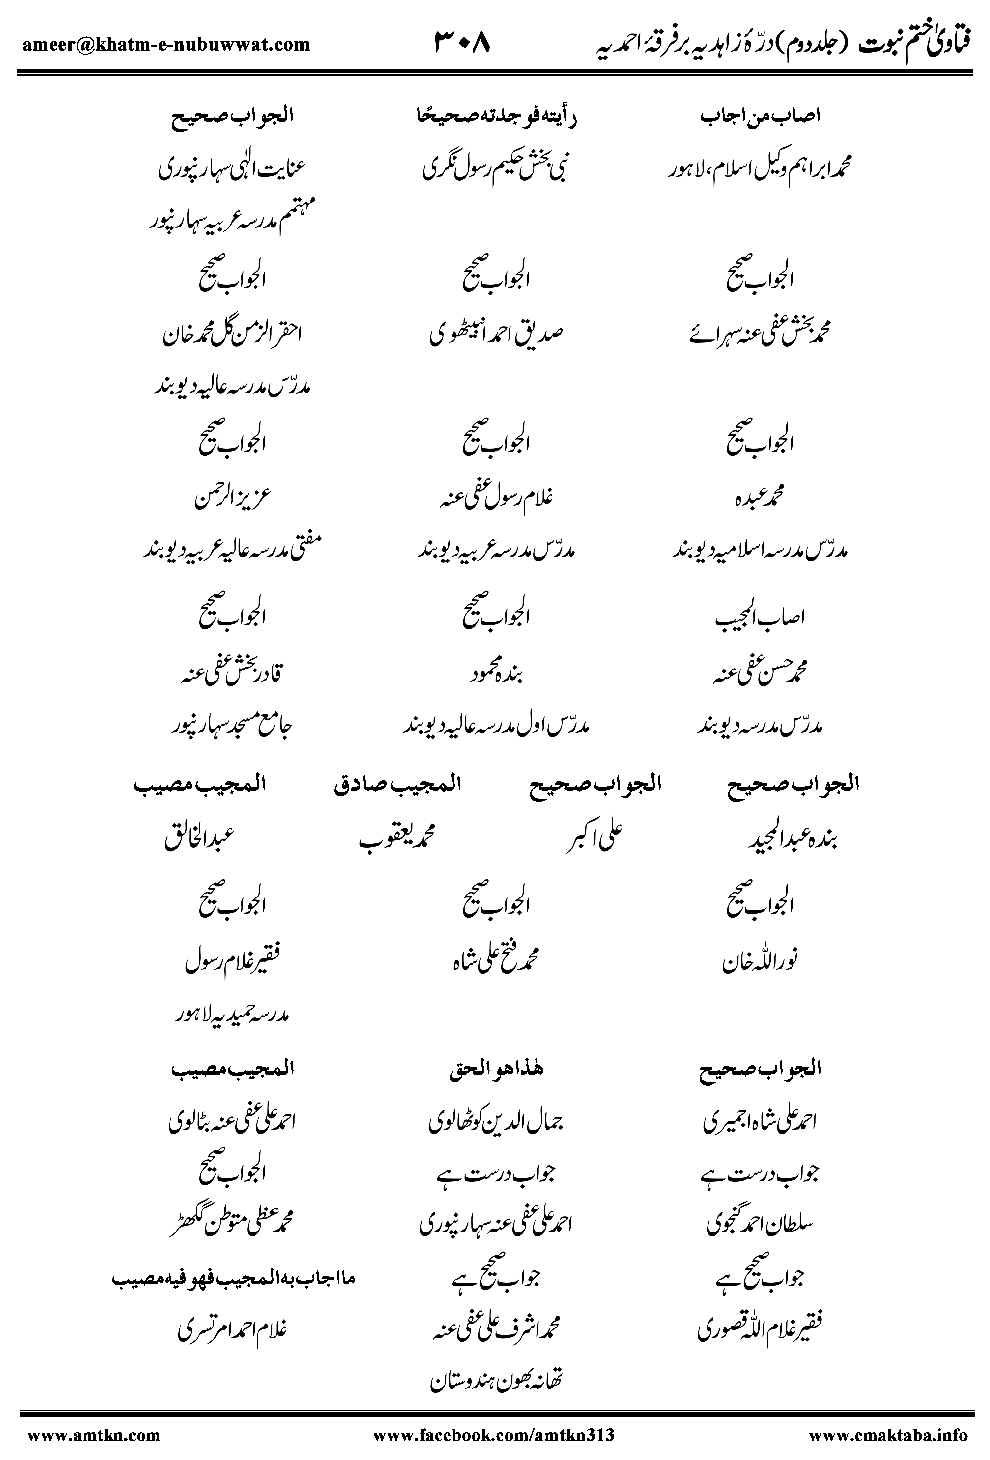 فتاویٰ ختم نبوت (جلد دوم) درّۂ زاہدیہ بر فرقۂ احمدیہ ۳۰۸ ameer@khatm-e-nubuwwat.com
اصاب من اجاب رأیته فوجدته صحیحًا الجواب صحیح
محمد ابراہیم وکیل اسلام، لاہور نبی بخش حکیم رسول نگری عنایت الٰہی سہارنپوری
مہتمم مدرسہ عربیہ سہارنپور
الجواب صحیح الجواب صحیح الجواب صحیح
محمد بخش عفی عنہ سہرائے صدیق احمد انبیٹھوی احقر الزمن گل محمد خان
مدرّس مدرسہ عالیہ دیوبند
الجواب صحیح الجواب صحیح الجواب صحیح
محمد عبدہ غلام رسول عفی عنہ عزیز الرحمن
مدرّس مدرسہ اسلامیہ دیوبند مدرّس مدرسہ عربیہ دیوبند مفتی مدرسہ عالیہ عربیہ دیوبند
اصاب المجیب الجواب صحیح الجواب صحیح
محمد حسن عفی عنہ بندہ محمود قادر بخش عفی عنہ
مدرّس مدرسہ دیوبند مدرّس اول مدرسہ عالیہ دیوبند جامع مسجد سہارنپور
الجواب صحیح الجواب صحیح المجیب صادق المجیب مصیب
بندہ عبدالمجید علی اکبر محمد یعقوب عبدالخالق
الجواب صحیح الجواب صحیح الجواب صحیح
نور اللہ خان محمد فتح علی شاہ فقیر غلام رسول
مدرسہ حمیدیہ لاہور
الجواب صحیح هٰذا هو الحق المجیب مصیب
احمد علی شاہ اجمیری جمال الدین کوٹھالوی احمد علی عفی عنہ بٹالوی
جواب درست ہے جواب درست ہے الجواب صحیح
سلطان احمد گنجوی احمد علی عفی عنہ سہارنپوری محمد عظیم متوطن گکھڑ
جواب صحیح ہے جواب صحیح ہے ما اجاب به المجیب فهو فیه مصیب
فقیر غلام اللہ قصوری محمد اشرف علی عفی عنہ غلام احمد امرتسری
تھانہ بھون ہندوستان
www.amtkn.com www.facebook.com/amtkn313 www.cmaktaba.info